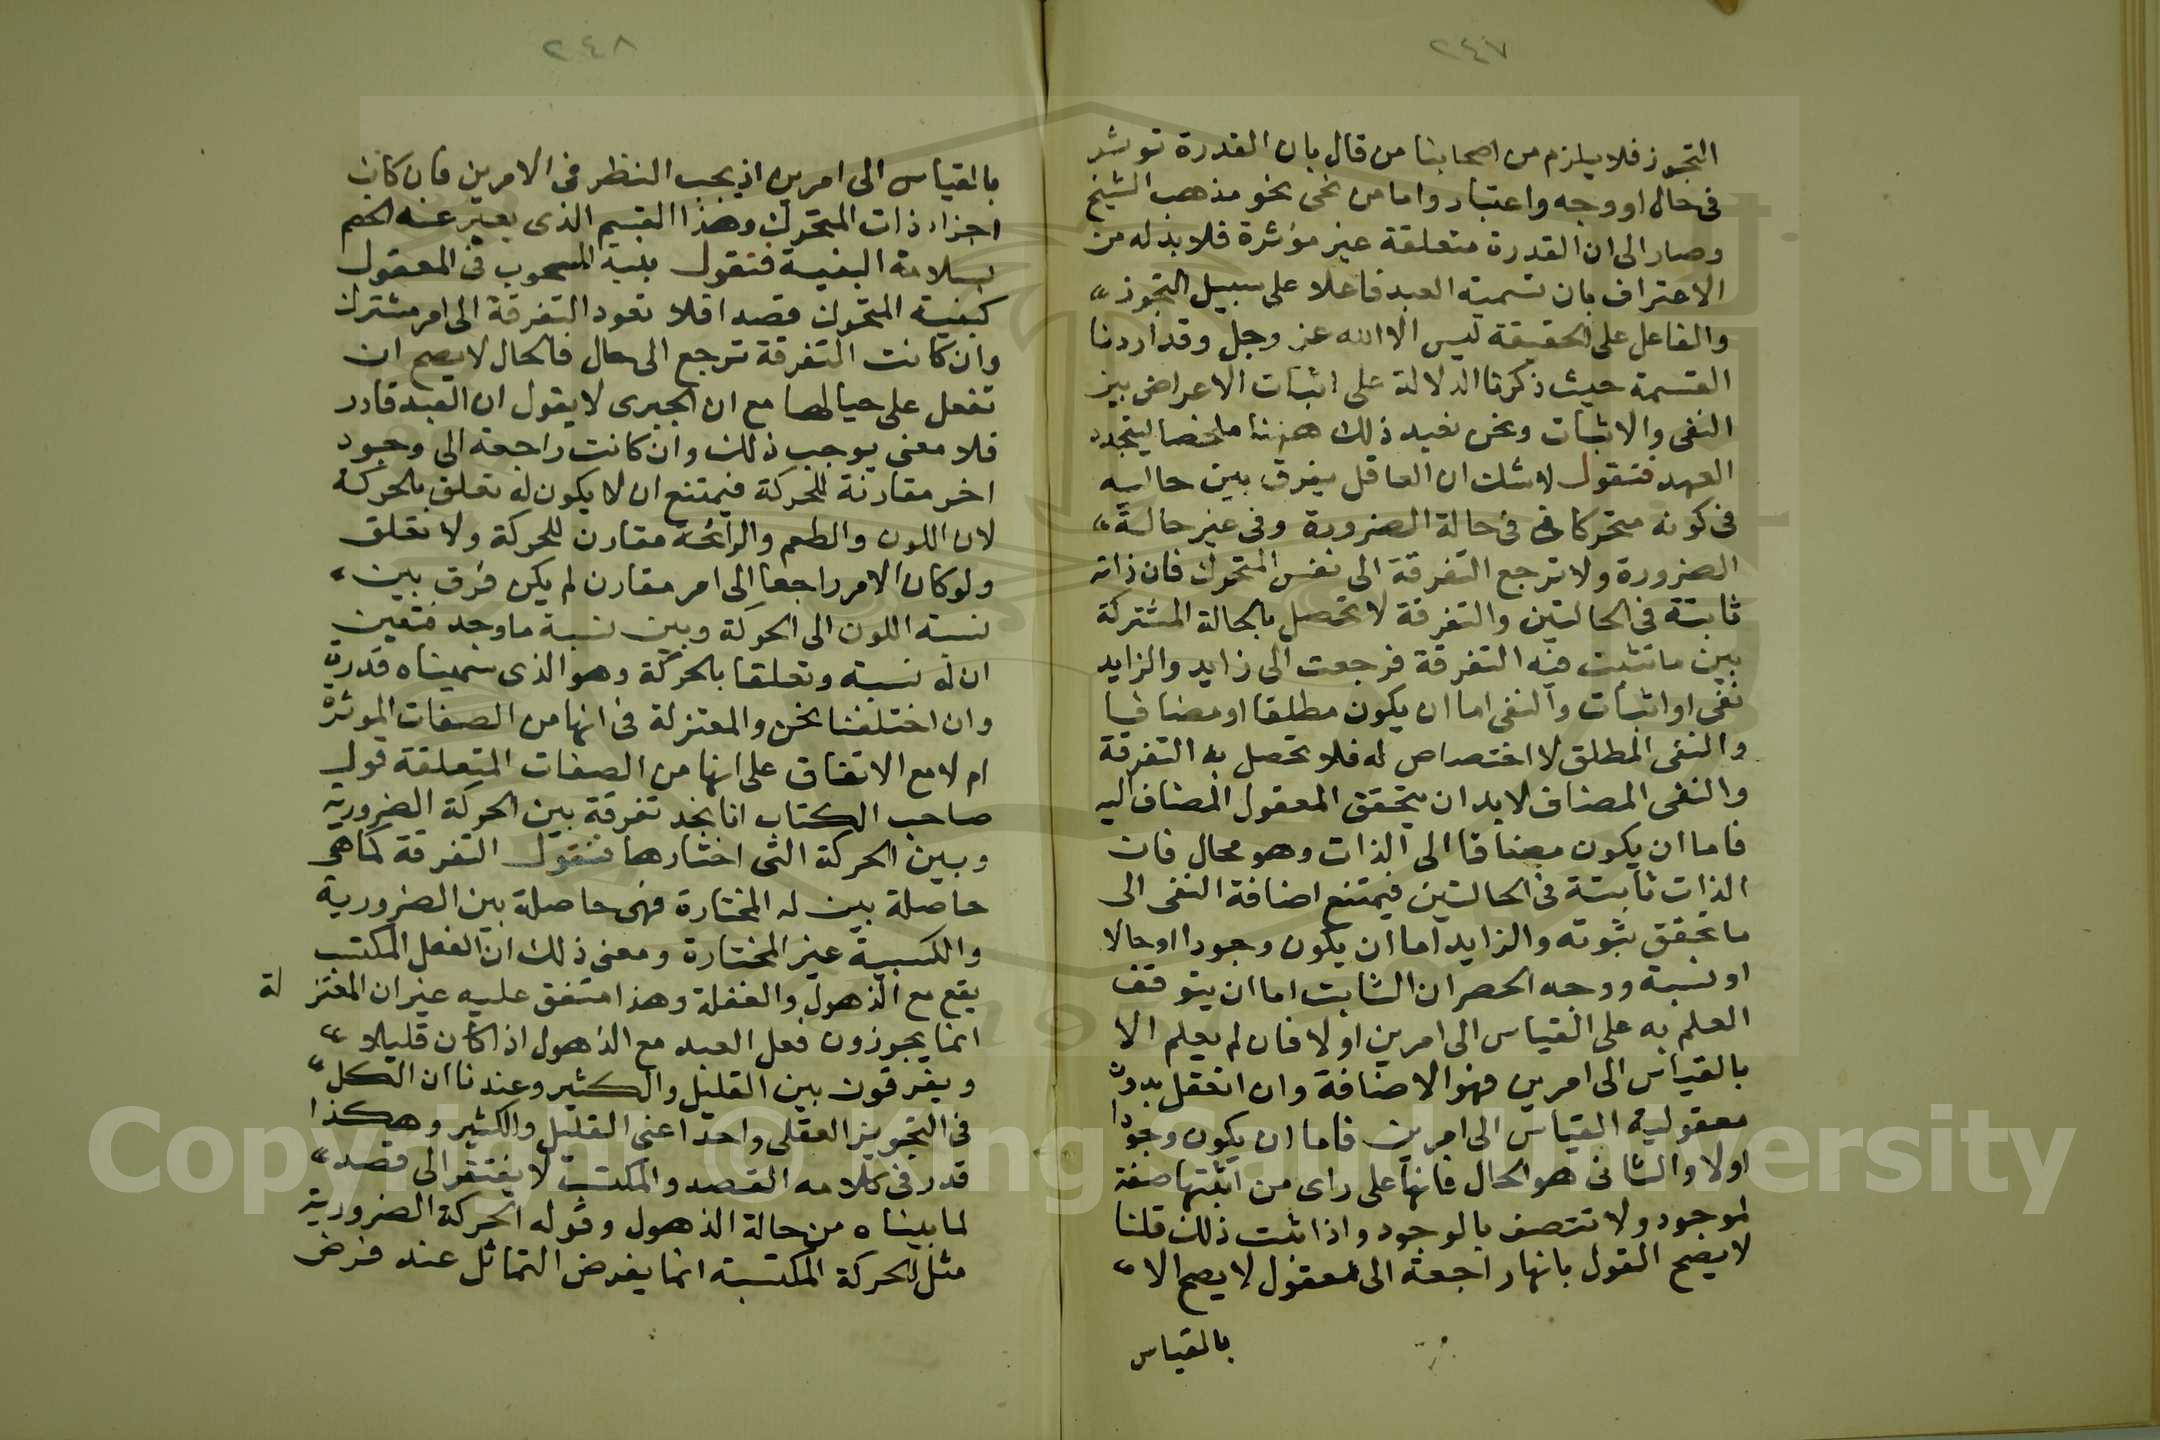 ٢٤٧
التجوز فلا يلزم من اصحابنا من قال بان القدرة توثر
فى حال او وجه واعتبار واما من نحى نحو مذهب الشيخ
وصار الى ان القدرة متعلقة غير مؤثرة فلا بد له من
الاعتراف بان تسمية العبد فاعلا على سبيل التجوز
والفاعل على الحقيقة ليس الا الله عز وجل وقد اردنا
القسمة حيث ذكرنا الدلالة على اثبات الاعراض بين
النفى والاثبات ونحن نعيد ذلك ههنا ملخصا ليتجدد
العهد فنقول لا شك ان العاقل يفرق بين حاليه
فى كونه متحركا فى حالة الضرورة وفى غير حالة
الضرورة ولا ترجع التفرقة الى نفس المتحرك فان ذاته
ثابتة فى الحالتين والتفرقة لا تحصل بالحالة المشتركة
بين ما تثبت فيه التفرقة فرجعت الى زايد والزايد
نفى او اثبات والنفى اما ان يكون مطلقا او مضافيا
والنفى المطلق لا اختصاص له فلا تحصل به التفرقة
والنفى المضاف لا بد ان يتحقق المعقول المضاف اليه
فاما ان يكون مضافا الى الذات وهو محال فان
الذات ثابتة فى الحالتين فيمتنع اضافة النفى الى
ما تحقق ثبوته والزايد اما ان يكون وجودا او حالا
او نسبة ووجه الحصر ان الثابت اما ان يتوقف
العلم به على القياس الى امرين او لا فان لم يعلم الا
بالقياس الى امرين فهو الاضافة وان انعقل بدون
معقولية القياس الى امرين فاما ان يكون وجودا
اولا والثانى هو الحال فانها على راى من اثبتها صفة
لموجود ولا تتصف بالوجود واذا ثبت ذلك قلنا
لا يصح القول بانها راجعة الى معقول لا يصح الا
بالقياس
٢٤٨
بالقياس الى امرين اذ يجب النظر فى الامرين فان كان
اجزاء ذات المتحرك وهذا القسم الذى يعبر عنه الخصم
بسلامة البنية فنقول بنية المسحوب فى المعقول
كبنية المتحرك قصدا فلا تعود التفرقة الى امر مشترك
وان كانت التفرقة ترجع الى حال فالحال لا يصح ان
تفعل على حيالها مع ان الجبرى لا يقول ان العبد قادر
فلا معنى يوجب ذلك وان كانت راجعة الى وجود
اخر مقارنة للحركة فيمتنع ان لا يكون له تعلق بالحركة
لان اللون والطعم والرائحة مقارن للحركة ولا تعلق
ولو كان الامر راجعا الى امر مقارن لم يكن فرق بين
نسبة اللون الى الحركة وبين نسبة ما وجد فتعين
ان له نسبة وتعلقا بالحركة وهو الذى سميناه قدرة
وان اختلفنا نحن والمعتزلة فى انها من الصفات الموثرة
ام لا مع الاتفاق على انها من الصفات المتعلقة قول
صاحب الكتاب انا نجد تفرقة بين الحركة الضرورية
وبين الحركة التى اختارها فنقول التفرقة كما هى
حاصلة بين له المختارة فهى حاصلة بين الضرورية
والكسبية غير المختارة ومعنى ذلك ان الفعل المكتسب
يقع مع الذهول والغفلة وهذا متفق عليه غير ان المعتز لة
انما يجوزون فعل العبد مع الذهول اذا كان قليلا
ويفرقون بين القليل والكثير وعندنا ان الكل
فى التجويز العقلى واحد اعنى القليل والكثير وهكذا
قدر فى كلامه القصد والمكتسب لا يفتقر الى قصد
لما بيناه من حالة الذهول وقوله الحركة الضرورية
مثل الحركة المكتسبة انما يفرض التماثل عند فرض
Copyright © King Saud University